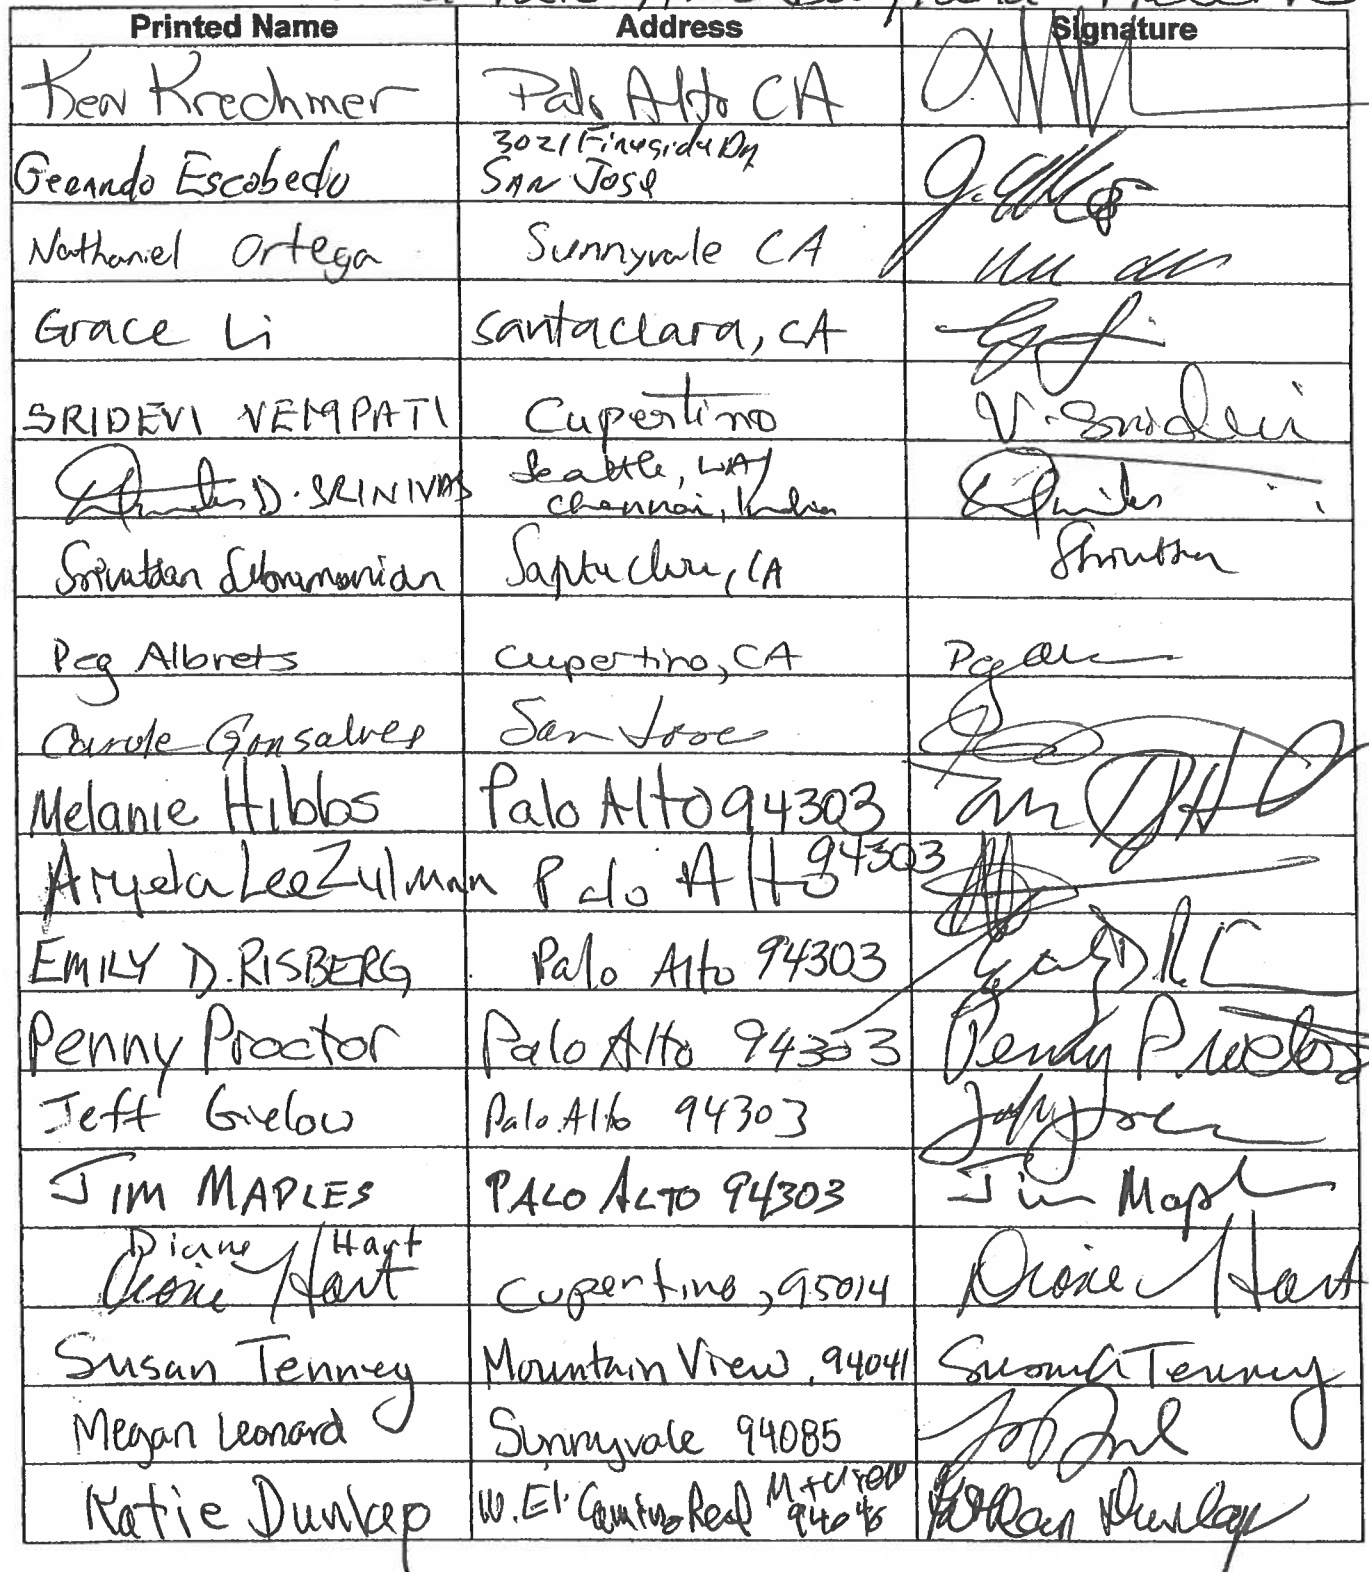 Printed Name Address Signature
Ken Krechmer Palo Alto CA
3021 Fireside Dr
Gerardo Escobedo San Jose
Nathaniel Ortega Sunnyvale CA
Grace Li santaclara, CA
SRIDEVI VEMPATI Cupertino V. Sridevi
Seattle, WA/
D. SRINIVAS Chennai, India
Srivatsan Subramanian Santa Clara, CA
Peg Albrets Cupertino, CA Peg
Carole Gonsalves San Jose
Melanie Hibbs Palo Alto 94303
Lee Zulman Palo Alto 94303
EMILY D. RISBERG Palo Alto 94303
Penny Proctor Palo Alto 94303 Penny Proctor
Jeff Gielow Palo Alto 94303
JIM MAPLES PALO ALTO 94303 Jim Maples
Diane Hart
Diane Hart Cupertino, 95014 Diane Hart
Susan Tenney Mountain View, 94041 Susan Tenney
Megan Leonard Sunnyvale 94085
Katie Dunlap W. El Camino Real Mt View 94040 Dunlap